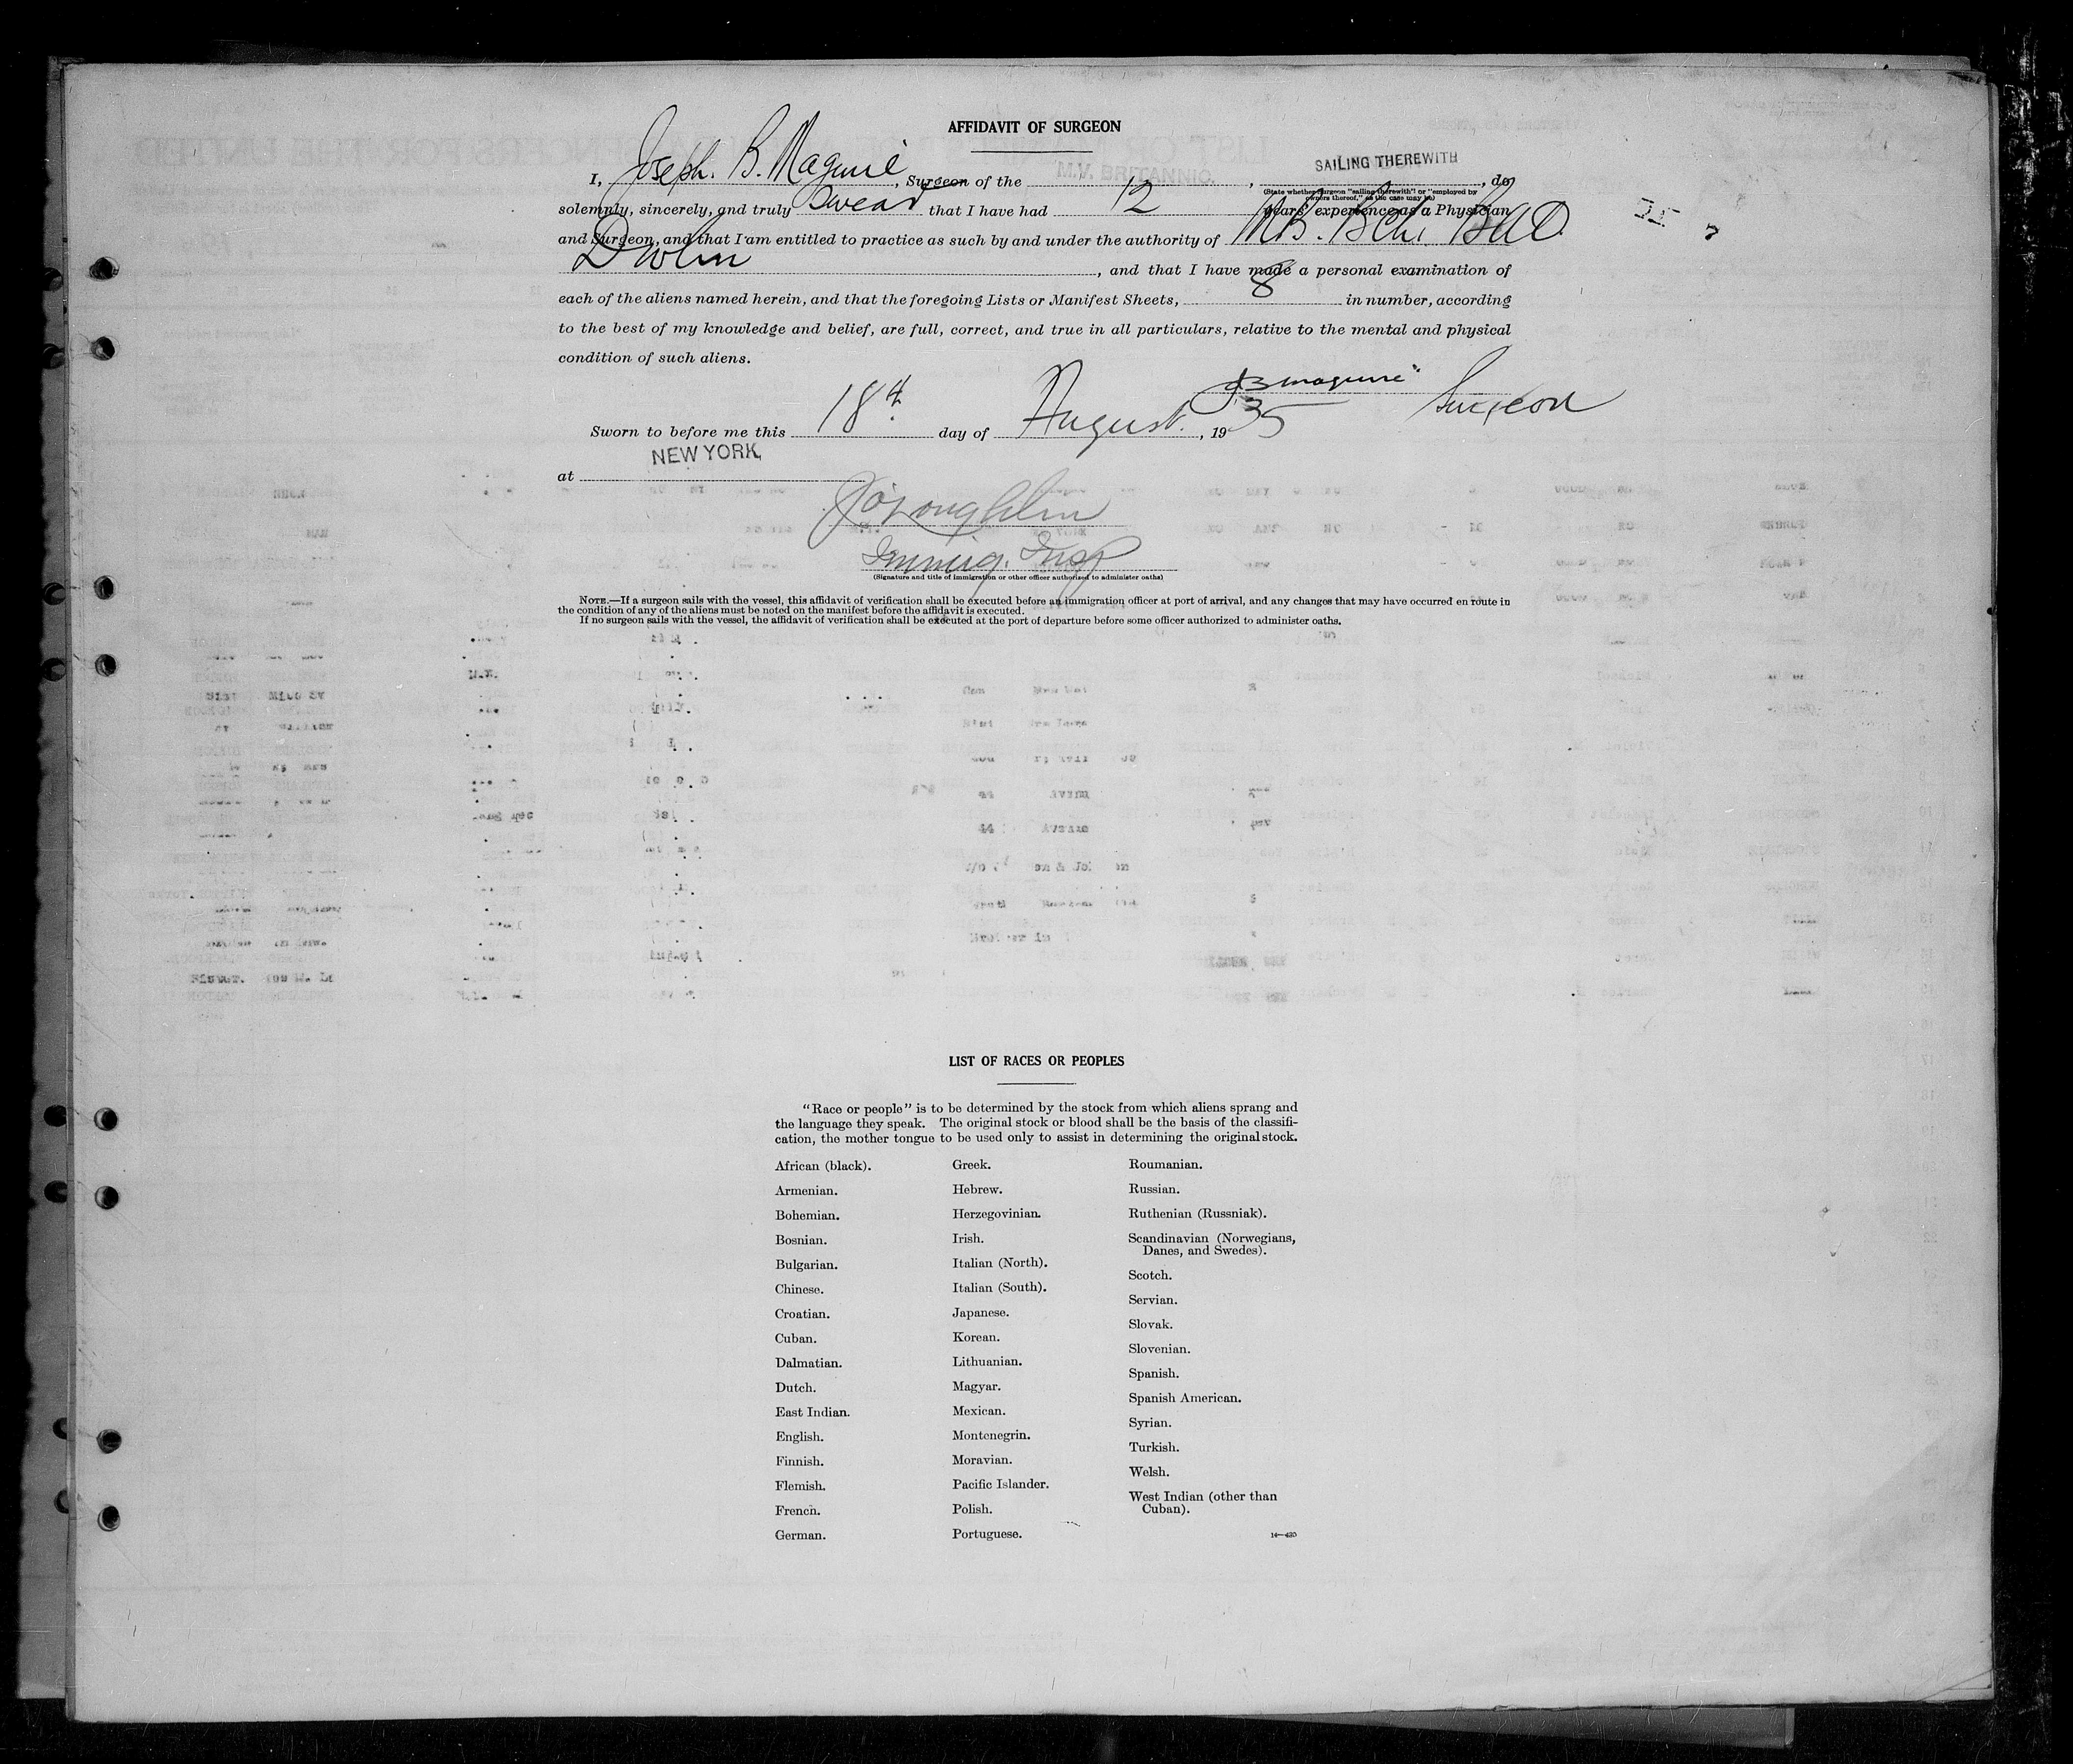 AFFIDAVIT OF SURGEON
I, Joseph. B. Maguire, Surgeon of the M.V. BRITANNIC, SAILING THEREWITH, do
(State whether surgeon "sailing therewith" or "employed by
owners thereof," as the case may be)
solemnly, sincerely, and truly swear that I have had 12 years' experience as a Physician
and Surgeon, and that I am entitled to practice as such by and under the authority of MB. BCh. BAO
Dublin, and that I have made a personal examination of
each of the aliens named herein, and that the foregoing Lists or Manifest Sheets, 8 in number, according
to the best of my knowledge and belief, are full, correct, and true in all particulars, relative to the mental and physical
condition of such aliens.
JB Maguire Surgeon
Sworn to before me this 18th day of August, 1935
at NEW YORK,
Immig. Insp
(Signature and title of immigration or other officer authorized to administer oaths)
NOTE.—If a surgeon sails with the vessel, this affidavit of verification shall be executed before an immigration officer at port of arrival, and any changes that may have occurred en route in
the condition of any of the aliens must be noted on the manifest before the affidavit is executed.
If no surgeon sails with the vessel, the affidavit of verification shall be executed at the port of departure before some officer authorized to administer oaths.
LIST OF RACES OR PEOPLES
"Race or people" is to be determined by the stock from which aliens sprang and
the language they speak. The original stock or blood shall be the basis of the classifi-
cation, the mother tongue to be used only to assist in determining the original stock.
African (black).
Armenian.
Bohemian.
Bosnian.
Bulgarian.
Chinese.
Croatian.
Cuban.
Dalmatian.
Dutch.
East Indian.
English.
Finnish.
Flemish.
French.
German.
Greek.
Hebrew.
Herzegovinian.
Irish.
Italian (North).
Italian (South).
Japanese.
Korean.
Lithuanian.
Magyar.
Mexican.
Montenegrin.
Moravian.
Pacific Islander.
Polish.
Portuguese.
Roumanian.
Russian.
Ruthenian (Russniak).
Scandinavian (Norwegians,
Danes, and Swedes).
Scotch.
Servian.
Slovak.
Slovenian.
Spanish.
Spanish American.
Syrian.
Turkish.
Welsh.
West Indian (other than
Cuban).
14—430